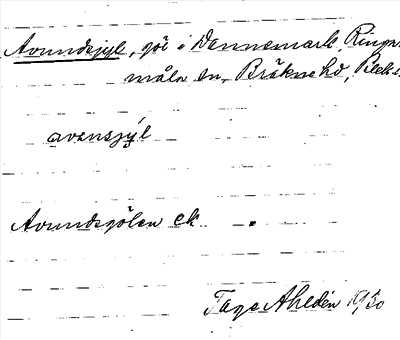 Avundsgyl, göl i Dennemark, Ringa-
måla sn, Bräkne hd, Blek.
avensjýl
Avundsgölen ek.
Tage Ahldén 1950